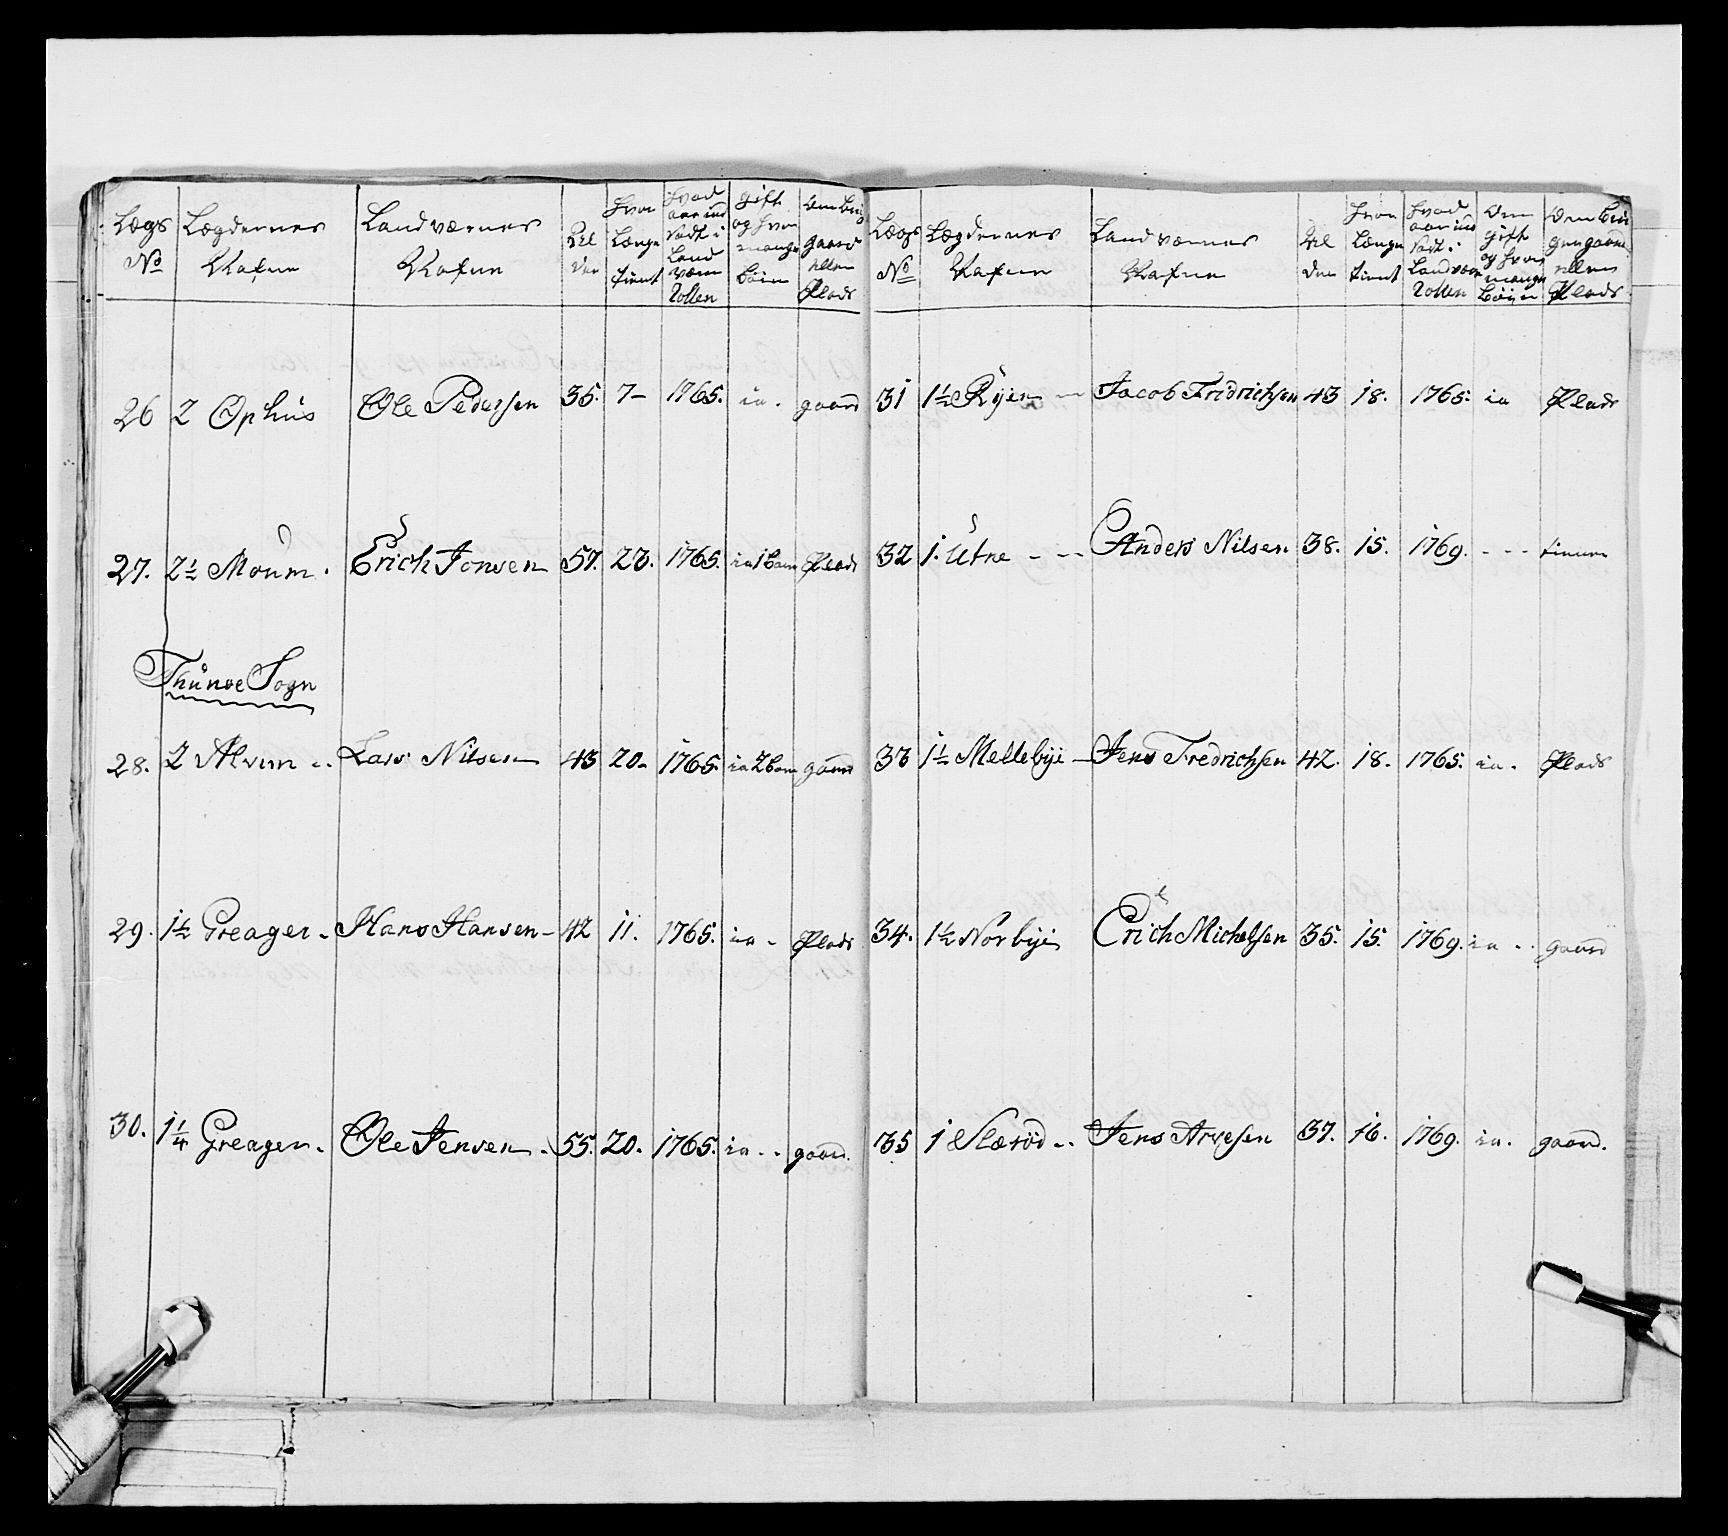 Lægs No
Lægdernes Nafne
Landværnes Nafne
Alder
hvor Længe tient
hvad aar ind sadt i Land værn Rollen
gift og hvor mange Börn
Om beb gaard eller Plads
26 2 Ophús Ole Pedersen 35. 7– 1765. ia. gaard
27. 2½ Moúm. Erich Jonsen 57. 23. 1765. ia 1 barn Plads
Thúnöe Sogn
28. 2 Alvim .. Lars Nilsen 43 20– 1765. ia 2 barn gaard
29. 1½ Greager – Hans Hansen – 42 11. 1765. ia – Plads
30. 1¼ Greager. Ole Jensen. 55. 20. 1765. ia .. gaard.
Lægs No
Lægdernes Nafne
Landværnes Nafne
Alder
hvor Længe tient
hvad aar ind sadt i Landværn Rollen
Om gift og hvor mange Börn
Om beb gaard eller Plads
31 1½ Ryen – Jacob Fridrichsen 43 18. 1765. ia Plads
32 1. Útne - - - Anders Nilsen 38. 15. 1769. - - - tiener
33 1½ Mellebye – Jens Fredrichsen 42. 18. 1765. ia. Plads
34. 1½ Norbye Erich Michelsen 35. 15. 1769. ia .. gaard
35 1 Slæröd .. Jens Arvesen 37. 16. 1769. ia. gaard.